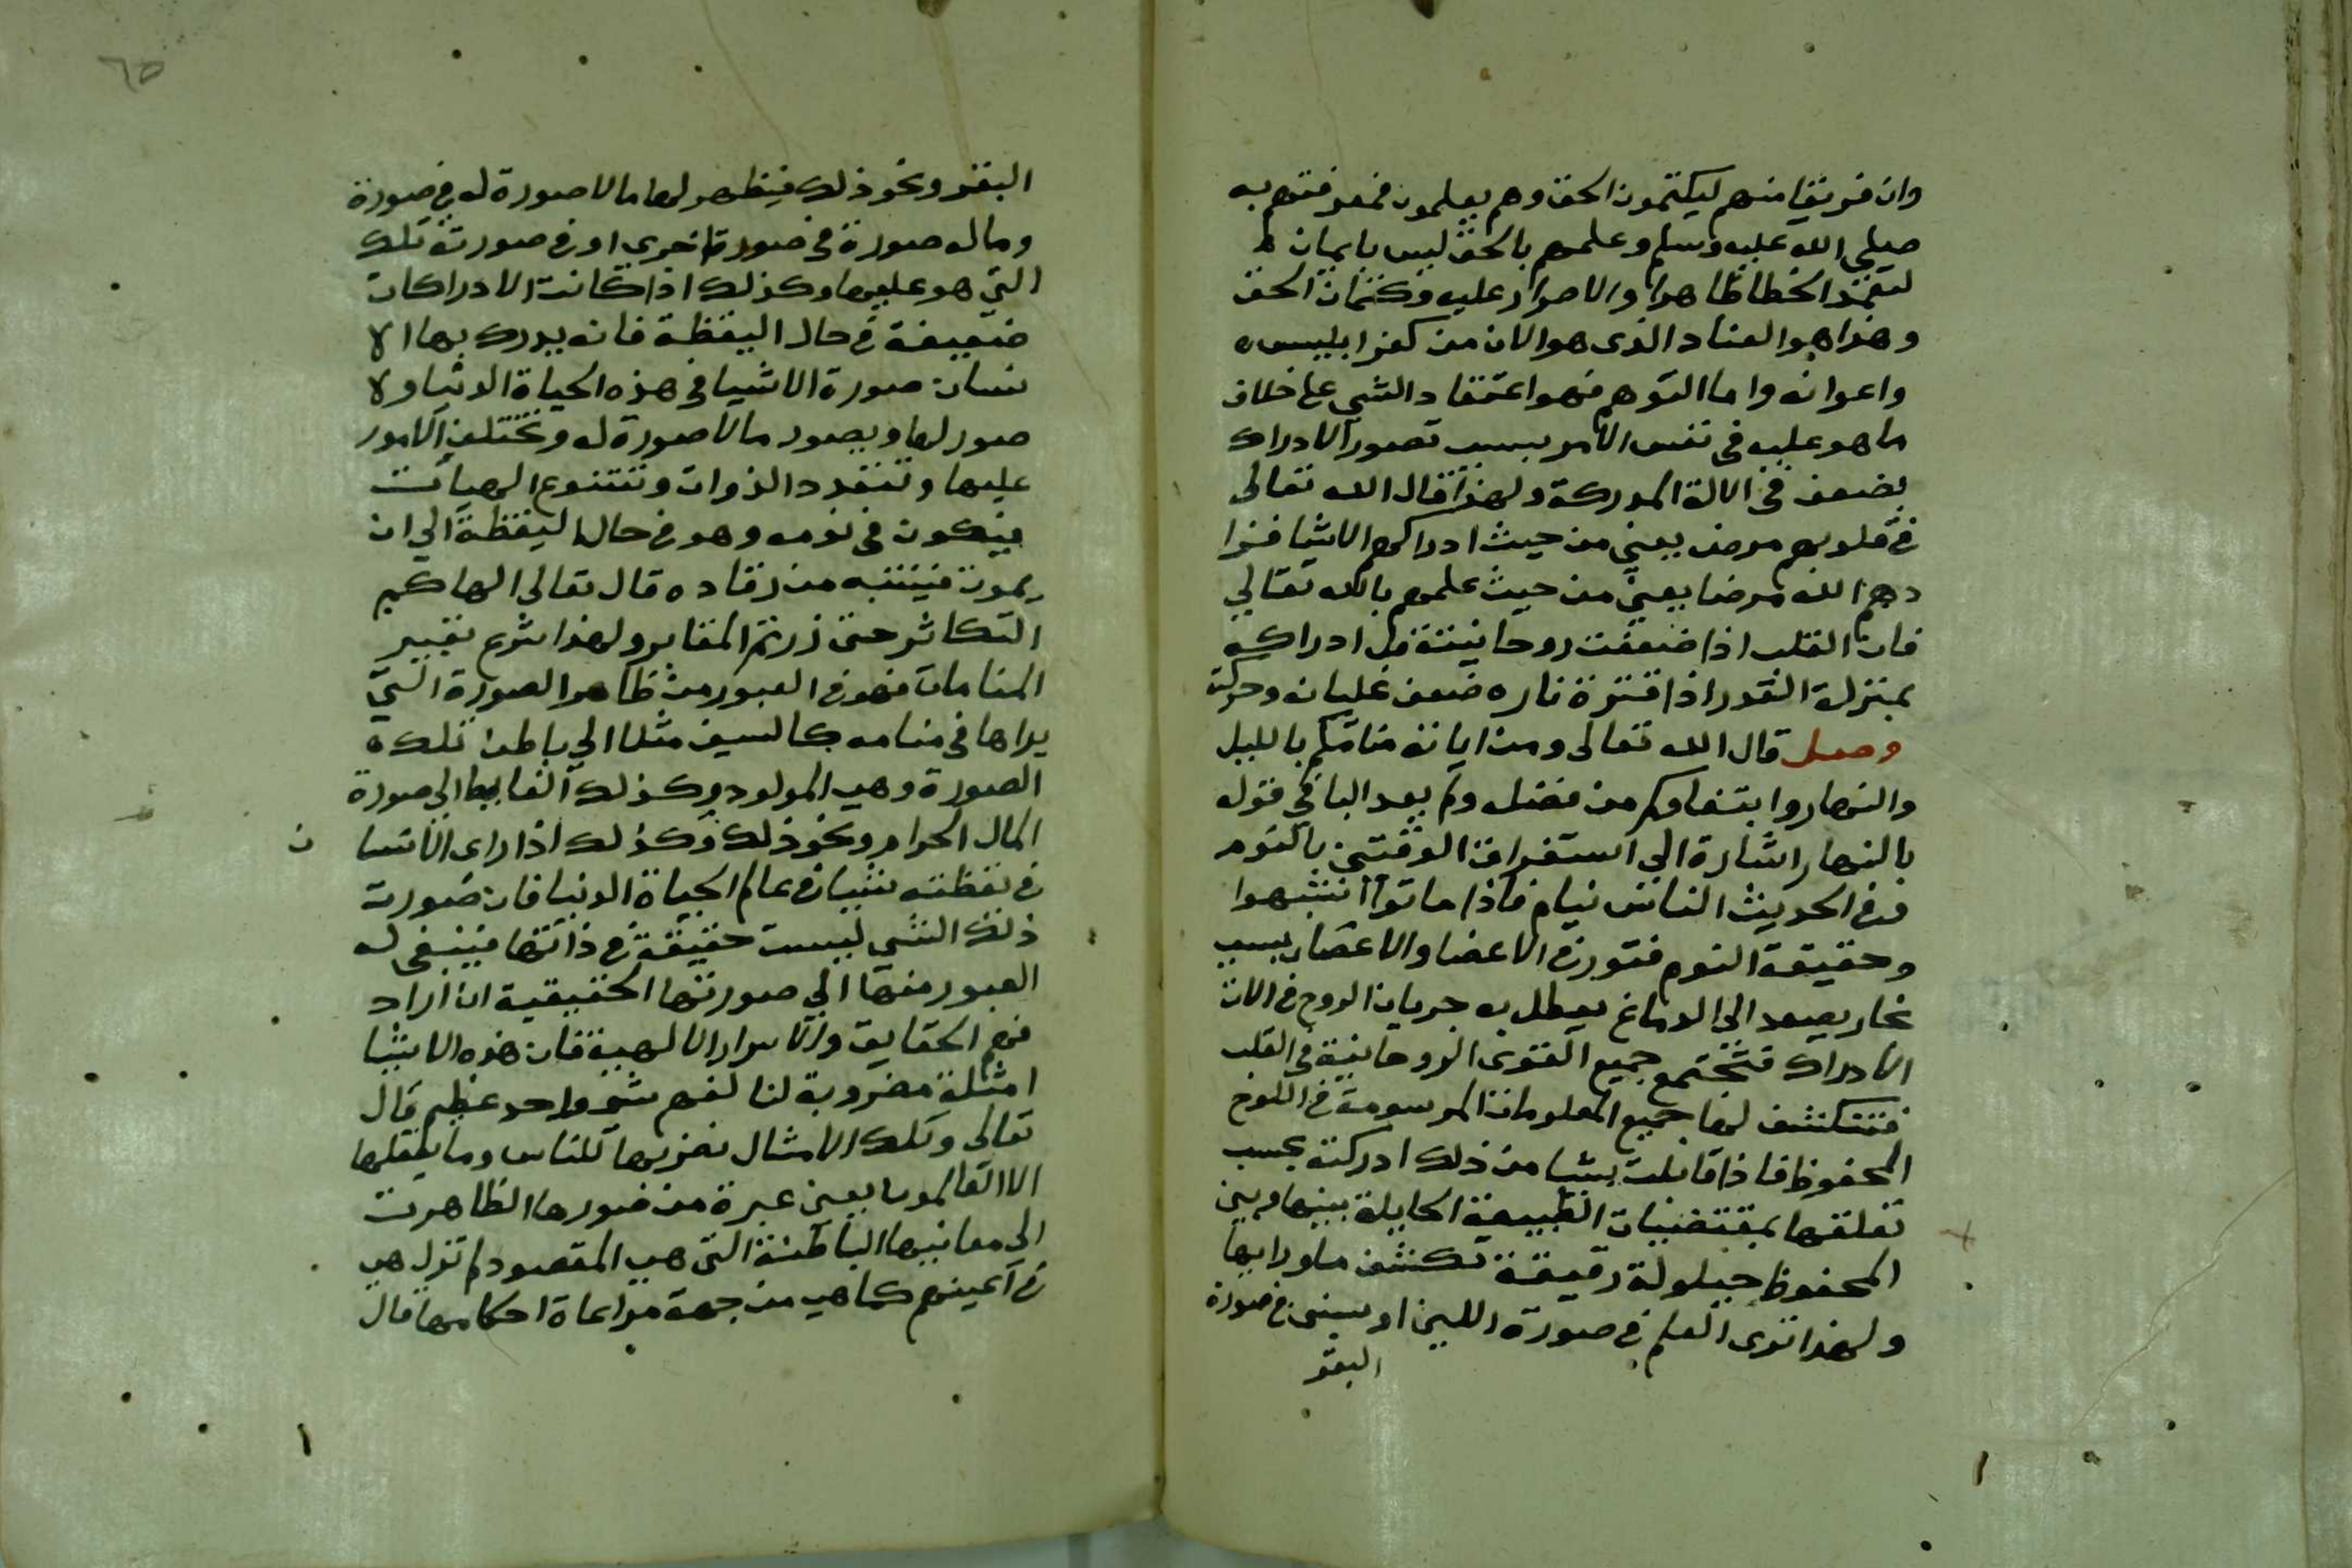 وان فريقا منهم ليكتمون الحق وهم يعلمون فمعرفتهم به
صلي الله عليه وسلم وعلمهم بالحق ليس بايمان
لتعمد الخطا ظاهرا والاصرار عليه وكتمان الحق
وهذا هو العناد الذى هو الان من كفر ابليس
واعوانه واما التوهم فهو اعتقاد الشي على خلاف
ما هو عليه في نفس الامر بسبب تصور الادراك
بضعف في الالة المدركة ولهذا قال الله تعالى
في قلوبهم مرض يعني من حيث ادراكهم الاشيا فزا
دهم الله مرضا يعني من حيث علمهم بالله تعالي
فان القلب اذا ضعفت روحانيته قل ادراكه
بمنزلة القدر اذا فترة ناره ضعف غليانه وحركته
وصل قال الله تعالى ومن اياته منامكم بالليل
والنهار وابتغاوكم من فضله ولم يعد البا في قوله
بالنهار اشارة الي استغراق الوقتين بالنوم
وفي الحديث الناس نيام فاذا ماتوا انتبهوا
وحقيقة النوم فتور في الاعضا والاعصاب بسبب
بخار يصعد الي الدماغ يعطل به جريان الروح في الات
الادراك فتجتمع جميع القوى الروحانية في القلب
فتنكشف لها جميع المعلومات المرسومة في اللوح
المحفوظ فاذا قابلت شيا من ذلك ادركته بحسب
تعلقها بمقتضيات الطبيعة الحايلة بينها وبين
المحفوظ حيلولة رقيقة تكشف ما ورايها
ولهذا ترى العلم في صورة اللبن او سنين في صورة
البقر
البقر ونحو ذلك فيظهر لها ما لا صورة له في صورة
وما له صورة في صورة اخرى او في صورته تلك
التي هو عليها وكذلك اذا كانت الادراكات
ضعيفة في حال اليقظة فانه يدرك بها الا
نسان صورة الاشيا في هذه الحياة الدنيا ولا
صور لها ويصور ما لا صورة له وتختلف الامور
عليها وتتعدد الذوات وتتنوع الهيآت
فيكون في نومه وهو في حال اليقظة الي ان
يموت فينتبه من رقاده قال تعالى الهاكم
التكاثر حتى زرتم المقابر ولهذا شرع تعبير
المنامات فهو في العبور من ظاهر الصورة التي
يراها في منامه كالسيف مثلا الي باطن تلك
الصورة وهي المولود وكذلك الغايط الي صورة
المال الحرام ونحو ذلك وكذلك اذا راى الانسا ن
في يقظته شيا في عالم الحياة الدنيا فان صورت
ذلك الشي ليست حقيقة في ذاتها فينبغى له
العبور منها الي صورتها الحقيقية ان اراد
فهم الحقايق والاسرار الالهية فان هذه الاشيا
امثلة مضروبة لنا لفهم شي واحد عظيم قال
تعالى وتلك الامثال نضربها للناس وما يعقلها
الا العالمون يعني عبرة من صورها الظاهرت
الى معانيها الباطنة التي هي المقصود ولم تزل هي
في اعينهم كما هي من جهة مراعاة احكامها قال